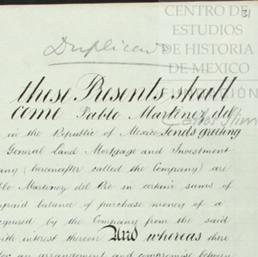 CENTRO DE
ESTUDIOS
DE HISTORIA
DE MEXICO
Duplicate
these Presents shall
come Pablo Martinez del
in the Republic of Mexico Sends greeting
General Land Mortgage and Investment
any (hereafter called the Company) are
blo Martinez del Rio in certain sums of
unpaid balance of purchase money of a
cquired by the Company from the said
with interest thereon And whereas there
for an arrangement and compromise between